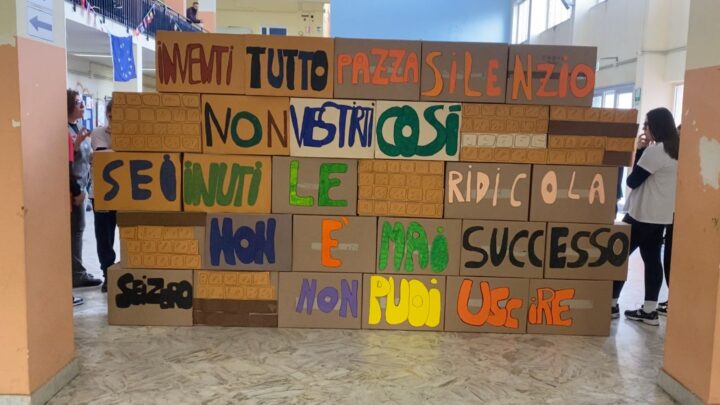 INVENTI TUTTO PAZZA SILENZIO
NON VESTIRTI COSÍ
SEI INUTILE RIDICOLA
NON È MAI SUCCESSO
SEI ZERO NON PUOI USCIRE